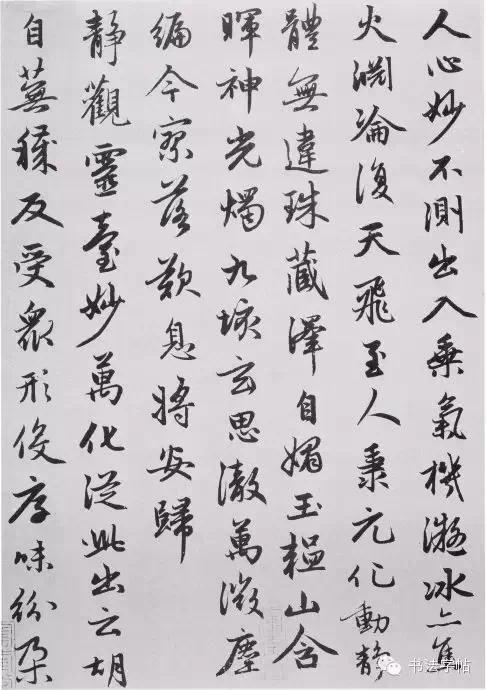 人心妙不測出入乘氣機凝冰亦焦
火淵淪復天飛至人秉元化動靜
體無違珠藏澤自媚玉韞山含
暉神光燭九垓玄思澈萬微塵
編今寥落歎息將安歸
靜觀靈臺妙萬化從此出云胡
自蕪穢反受眾形役厚味紛朵
书法字帖